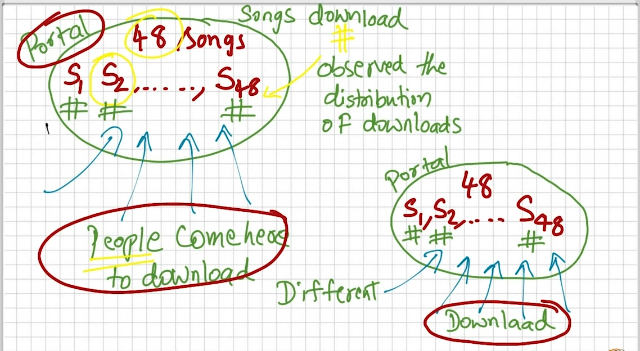 Songs download
#
Portal
48 Songs
S1 S2, ......, S48
# # #
observed the
distribution
of downloads
People Come here
to download
Portal
48
S1, S2, .... S48
# # #
Different
Download